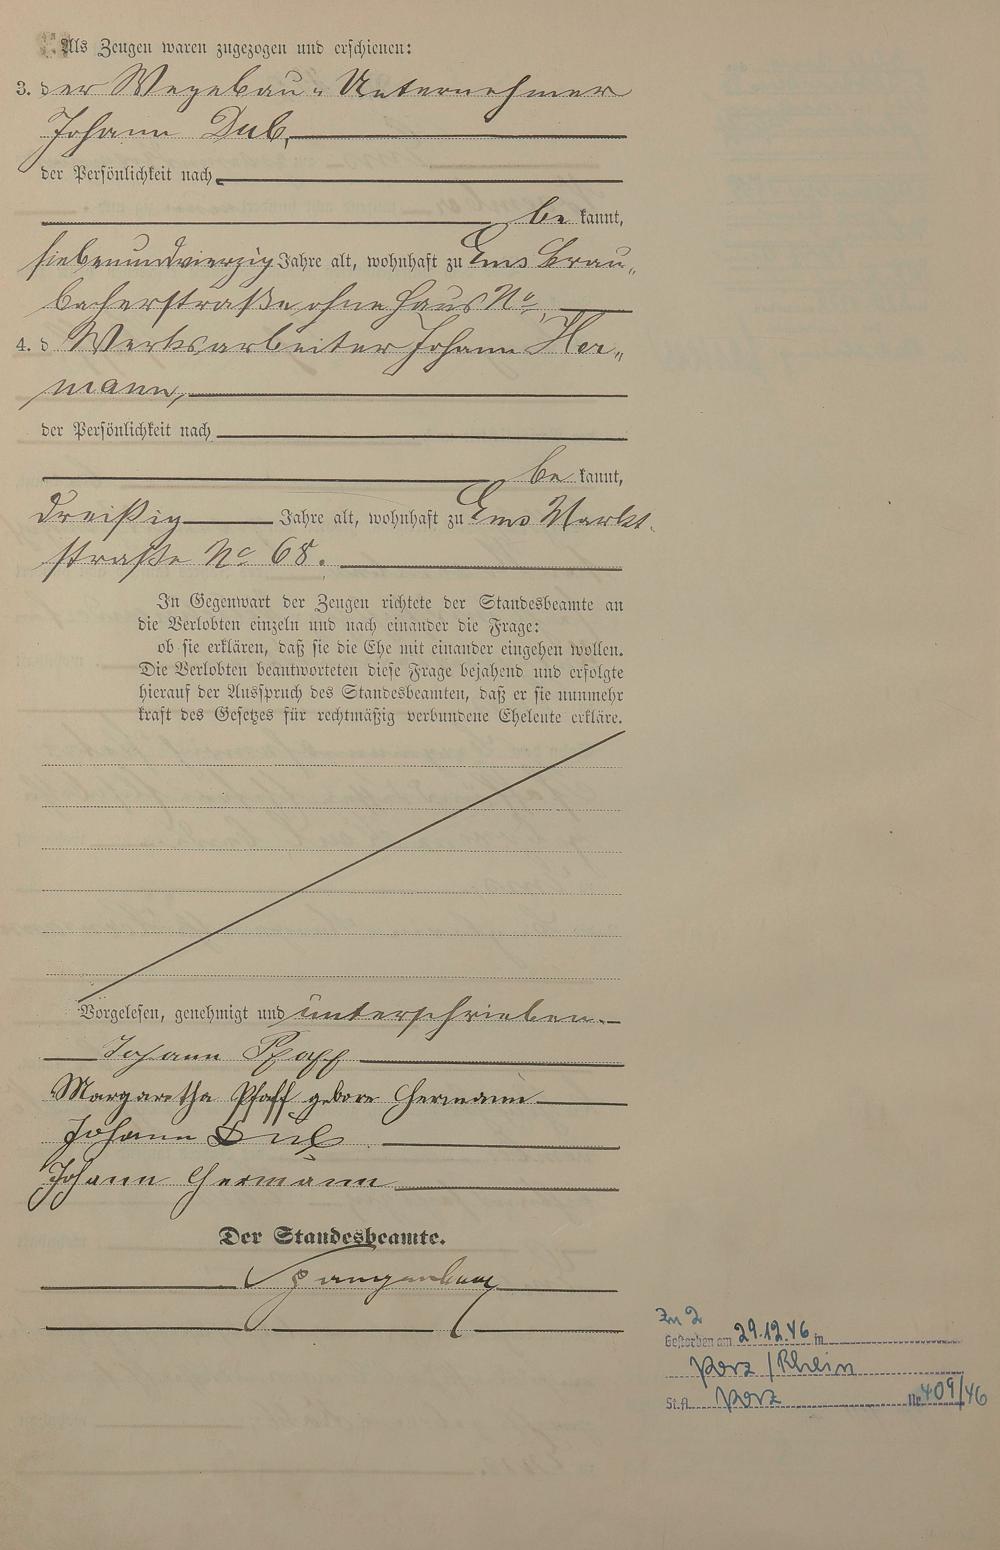 Als Zeugen waren zugezogen und erschienen:
3. der Wegebau-Unternehmer
Johann Dul,
der Persönlichkeit nach
be kannt,
siebenundvierzig Jahre alt, wohnhaft zu Ems Brau-
bacherstraße ohne Haus No,
4. d Werksarbeiter Johann Her-
mann,
der Persönlichkeit nach
be kannt,
dreißig Jahre alt, wohnhaft zu Ems Markt-
straße No 68.
In Gegenwart der Zeugen richtete der Standesbeamte an
die Verlobten einzeln und nach einander die Frage:
ob sie erklären, daß sie die Ehe mit einander eingehen wollen.
Die Verlobten beantworteten diese Frage bejahend und erfolgte
hierauf der Ausspruch des Standesbeamten, daß er sie nunmehr
kraft des Gesetzes für rechtmäßig verbundene Eheleute erkläre.
Vorgelesen, genehmigt und unterschrieben.
Johann Pfaff
Margaretha Pfaff gebore Hermann
Johann Dul
Johann Hermann
Der Standesbeamte.
Zu 2
Gestorben am 29.12.46 in
Porz / Rhein
St.A. Porz Nr. 409/46